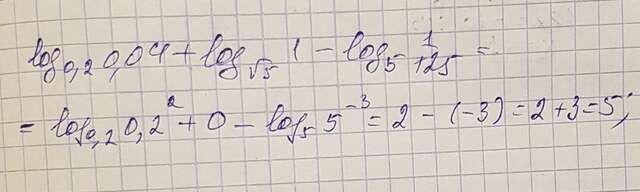 log₀,₂ 0,04 + log_√5 1 − log₅ 1/125 =
= log₀,₂ 0,2² + 0 − log₅ 5⁻³ = 2 − (−3) = 2 + 3 = 5;